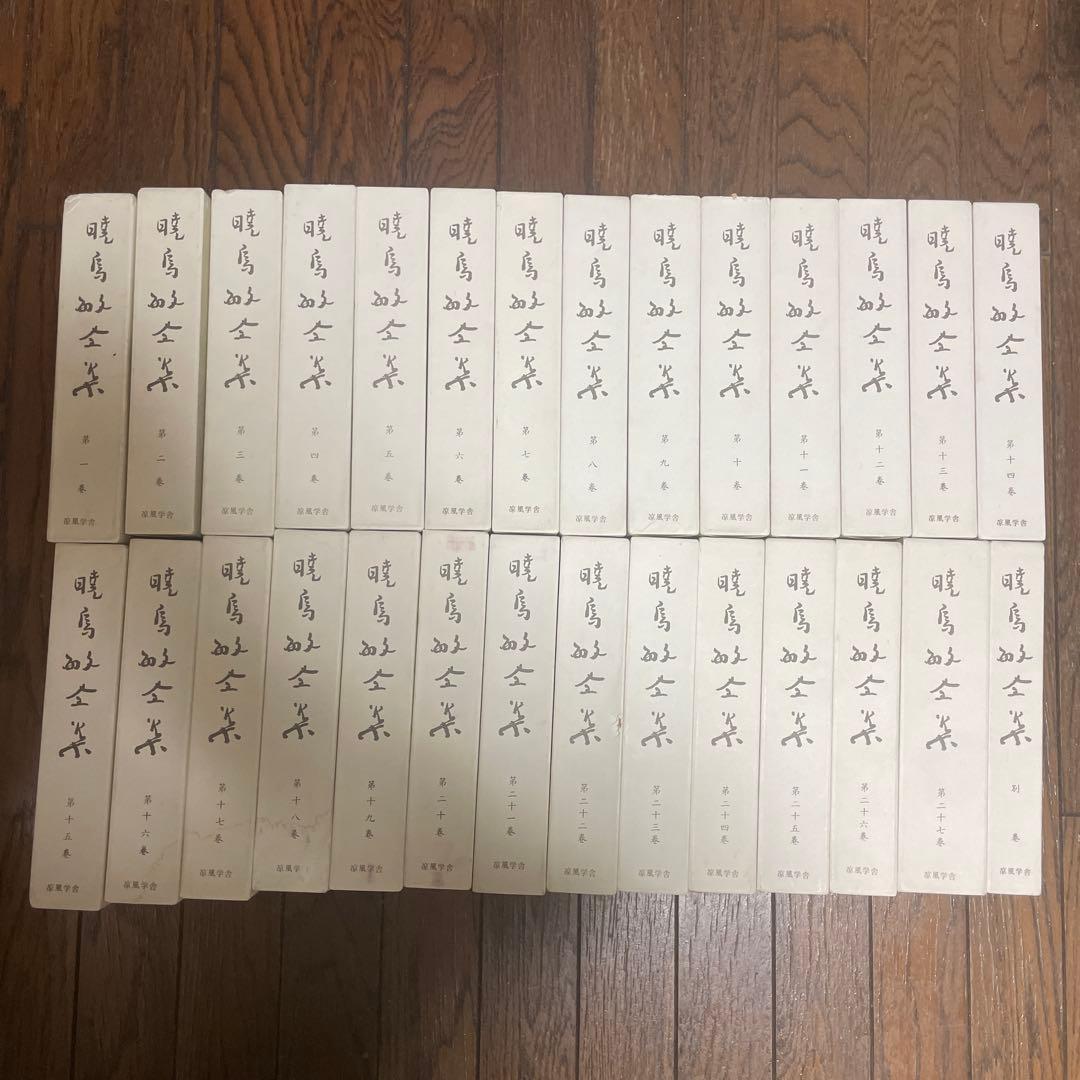 暁烏敏全集 第一巻 涼風学舎
暁烏敏全集 第二巻 涼風学舎
暁烏敏全集 第三巻 涼風学舎
暁烏敏全集 第四巻 涼風学舎
暁烏敏全集 第五巻 涼風学舎
暁烏敏全集 第六巻 涼風学舎
暁烏敏全集 第七巻 涼風学舎
暁烏敏全集 第八巻 涼風学舎
暁烏敏全集 第九巻 涼風学舎
暁烏敏全集 第十巻 涼風学舎
暁烏敏全集 第十一巻 涼風学舎
暁烏敏全集 第十二巻 涼風学舎
暁烏敏全集 第十三巻 涼風学舎
暁烏敏全集 第十四巻 涼風学舎
暁烏敏全集 第十五巻 涼風学舎
暁烏敏全集 第十六巻 涼風学舎
暁烏敏全集 第十七巻 涼風学舎
暁烏敏全集 第十八巻 涼風学舎
暁烏敏全集 第十九巻 涼風学舎
暁烏敏全集 第二十巻 涼風学舎
暁烏敏全集 第二十一巻 涼風学舎
暁烏敏全集 第二十二巻 涼風学舎
暁烏敏全集 第二十三巻 涼風学舎
暁烏敏全集 第二十四巻 涼風学舎
暁烏敏全集 第二十五巻 涼風学舎
暁烏敏全集 第二十六巻 涼風学舎
暁烏敏全集 第二十七巻 涼風学舎
暁烏敏全集 別巻 涼風学舎